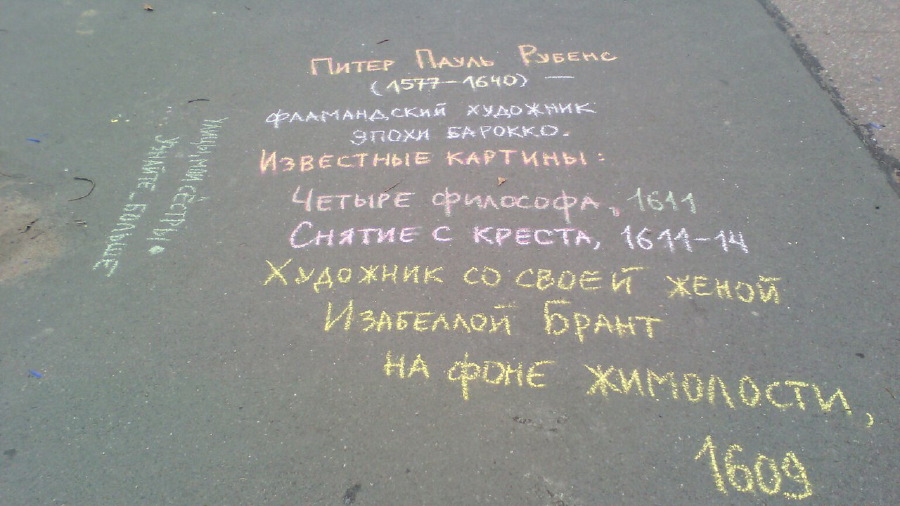 Питер Пауль Рубенс
(1577–1640) —
фламандский художник
эпохи барокко.
Известные картины:
Четыре философа, 1611
Снятие с креста, 1611–14
Художник со своей женой
Изабеллой Брант
на фоне жимолости,
1609
Улицы, мои сёстры
Узнайте больше